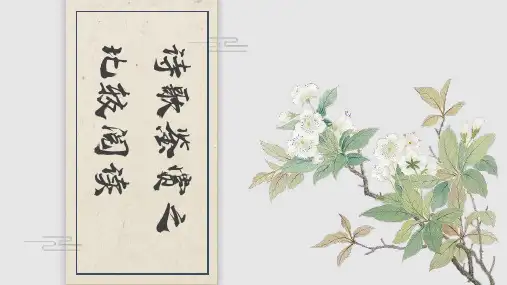 诗歌鉴赏之
比较阅读